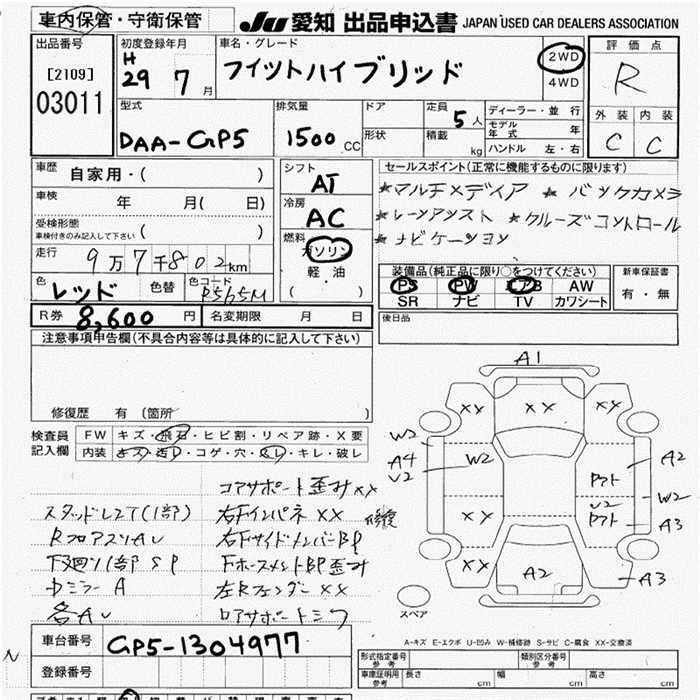 車内保管・守衛保管
JU 愛知 出品申込書 JAPAN USED CAR DEALERS ASSOCIATION
出品番号
[2109]
03011
初度登録年月
H
29 7 月
車名・グレード
フィットハイブリッド
2WD
4WD
評価点
R
外装 内装
C C
型式
DAA-GP5
排気量
1500 CC
ドア
形状
定員 5 人
積載 kg
ディーラー・並 行
モデル年式 年
ハンドル 左・右
車歴
自家用・( )
車検 年 月( 日)
受検形態
車検付きのみ記入して下さい ( )
走行
9万7千802km
色
レッド
色替
色コード
R565M
シフト
AT
冷房
AC
燃料
ガソリン
軽 油
( )
セールスポイント(正常に機能するものに限ります)
★マルチメディア ★バックカメラ
★レーンアシスト ★クルーズコントロール
★ナビゲーション
装備品(純正品に限り○をつけてください)
PS PW エアB AW
SR ナビ TV カワシート
新車保証書
有・無
R券 8,600 円
名変期限 月 日
後日品
注意事項申告欄(不具合内容等は具体的に記入して下さい)
修復歴 有 (箇所 )
検査員記入欄
FW キズ・飛石・ヒビ割・リペア跡・X要
内装 キズ・汚レ・コゲ・穴・スレ・キレ・破レ
コアサポート歪みXX
スタッドレスT(1部) 右FインパネXX 修復
RフロアスリAU 右FサイドメンバーBP
下廻り1部SP FホースメントBP歪み
DミラーA 左RフェンダーXX
各AU ロアサポートシワ
A1
XX
XX
XX
W2
A4
U2
W2
Pアト
A2
U2
W2
Pアト
A3
XX
XX
A2
A3
スペア
車台番号
GP5-1304977
登録番号
A-キズ E-エクボ U-凹み W-補修跡 S-サビ C-腐食 XX-交換済
形式指定番号
参考
類別区分番号
参考
車庫証明用
参考
長さ cm 幅 cm 高さ cm